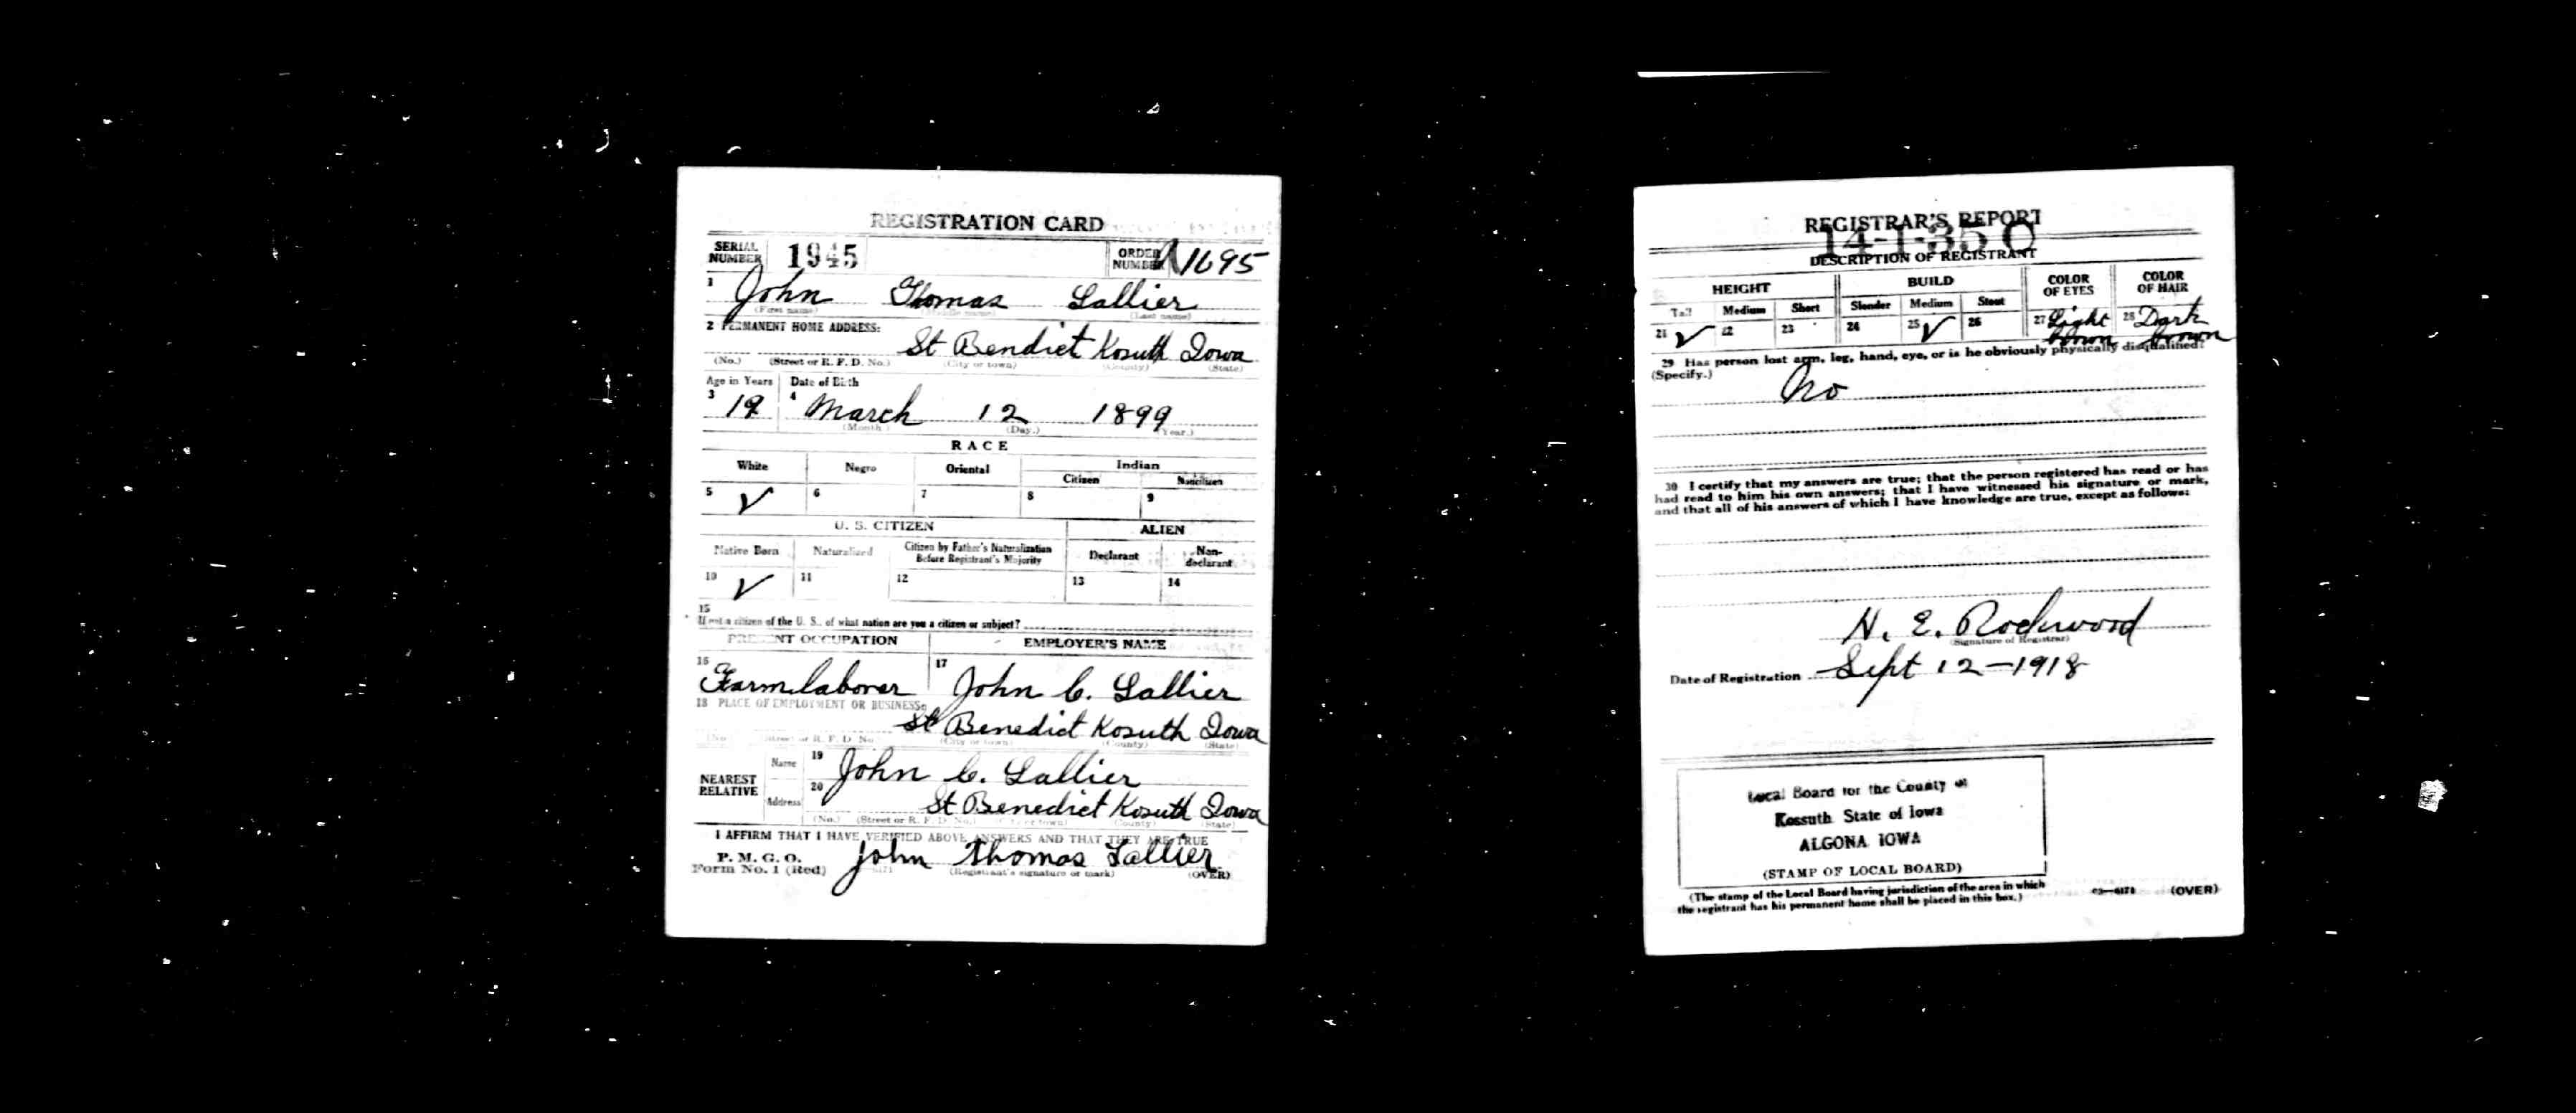 REGISTRATION CARD
SERIAL NUMBER 1945 ORDER NUMBER A1695
1 John Thomas Lallier
(First name) (Middle name) (Last name)
2 PERMANENT HOME ADDRESS:
St Bendict Kosuth Iowa
(No.) (Street or R. F. D. No.) (City or town) (County) (State)
Age in Years Date of Birth
3 19 4 March 12 1899
(Month.) (Day.) (Year.)
RACE
White Negro Oriental Indian
Citizen Noncitizen
5 ✓ 6 7 8 9
U. S. CITIZEN ALIEN
Native Born Naturalized Citizen by Father's Naturalization Before Registrant's Majority Declarant Non-declarant
10 ✓ 11 12 13 14
15
If not a citizen of the U. S., of what nation are you a citizen or subject?
PRESENT OCCUPATION EMPLOYER'S NAME
16 Farm laborer 17 John C. Lallier
18 PLACE OF EMPLOYMENT OR BUSINESS:
St Benedict Kosuth Iowa
(No.) (Street or R. F. D. No.) (City or town) (County) (State)
NEAREST RELATIVE
Name 19 John C. Lallier
Address 20 St Benedict Kosuth Iowa
(No.) (Street or R. F. D. No.) (City or town) (County) (State)
I AFFIRM THAT I HAVE VERIFIED ABOVE ANSWERS AND THAT THEY ARE TRUE
P. M. G. O.
Form No. 1 (Red) John Thomas Lallier
(Registrant's signature or mark) (OVER)
REGISTRAR'S REPORT
14-1-35 C
DESCRIPTION OF REGISTRANT
HEIGHT BUILD COLOR OF EYES COLOR OF HAIR
Tall Medium Short Slender Medium Stout
21 ✓ 22 23 24 25 ✓ 26 27 Light brown 28 Dark brown
29 Has person lost arm, leg, hand, eye, or is he obviously physically disqualified?
(Specify.) No
30 I certify that my answers are true; that the person registered has read or has
had read to him his own answers; that I have witnessed his signature or mark,
and that all of his answers of which I have knowledge are true, except as follows:
H. E. Rockwood
(Signature of Registrar)
Date of Registration Sept 12-1918
Local Board for the County of
Kossuth State of Iowa
ALGONA IOWA
(STAMP OF LOCAL BOARD)
(The stamp of the Local Board having jurisdiction of the area in which
the registrant has his permanent home shall be placed in this box.)
03-6171 (OVER)